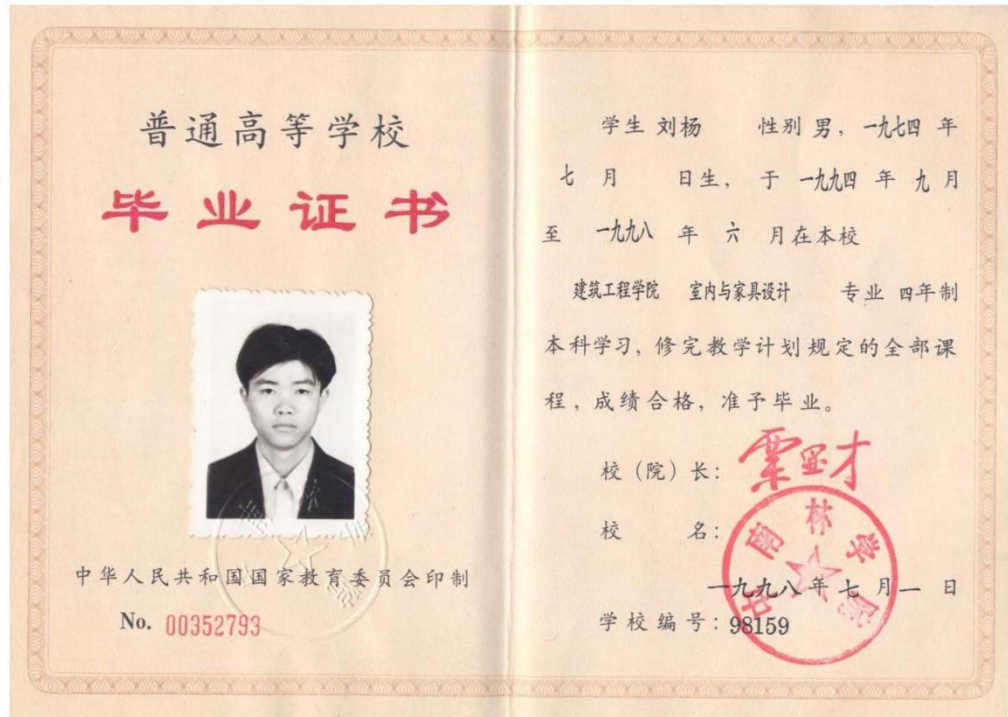 普通高等学校
毕业证书
中华人民共和国国家教育委员会印制
No. 00352793
学生 刘杨 性别 男, 一九七四 年
七 月 日生, 于 一九九四 年 九 月
至 一九九八 年 六 月在本校
建筑工程学院 室内与家具设计 专业 四年制
本科学习, 修完教学计划规定的全部课
程, 成绩合格, 准予毕业。
校(院)长:
校 名:
中南林学院
一九九八年七月一日
学校编号: 98159